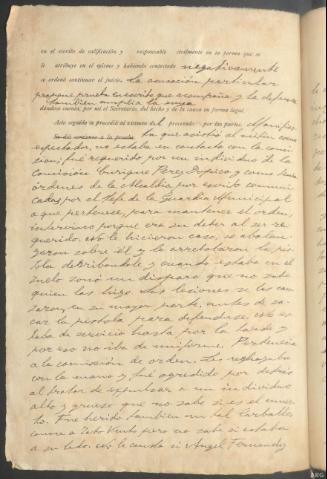 en el escrito de calificación y responsable civilmente en su forma que se
le atribuye en el mismo y habiendo contestado negativamente
se ordenó continuase el juicio. La acusación particular
propone prueba en escrito que acompaña y la defensa
también amplia la suya
dándose cuenta, por mí el Secretario, del hecho y de la causa en forma legal.
Acto seguido se procedió al examen del procesado por las partes. Manifies
ta que asistió al mitin como
espectador, no estaba en contacto con la comi
sión; fué requerido por un individuo de la
Comisión Enrique Perez y como tenía
órdenes de la Alcaldia por escrito comuni
cadas por el Jefe de la Guardia Municipal
a que pertenece, para mantener el orden,
intervino porque era un deber al ser re
querido. No le hicieron caso, se abalan
zaron sobre él y le arrebataron la pis
tola debiéndole y cuando estaba en el
suelo sonó un disparo que no sabe
quien lo hizo. Las lesiones se las cau
saron, en su mayor parte, antes de sa
car la pistola para defenderse. No es
taba de servicio hasta por la tarde y
por eso no iba de uniforme. Pertenecia
a la comisión de orden. Les rechazaba
con la mano y fué agredido por detrás
al tratar de expulsar a un individuo
alto y grueso que no sabe si es el muer
to. Fue herido tambien un tal Carballo
conoce a Tito Vento pero no sabe si estaba
a su lado. No le consta si Angel Fernandez